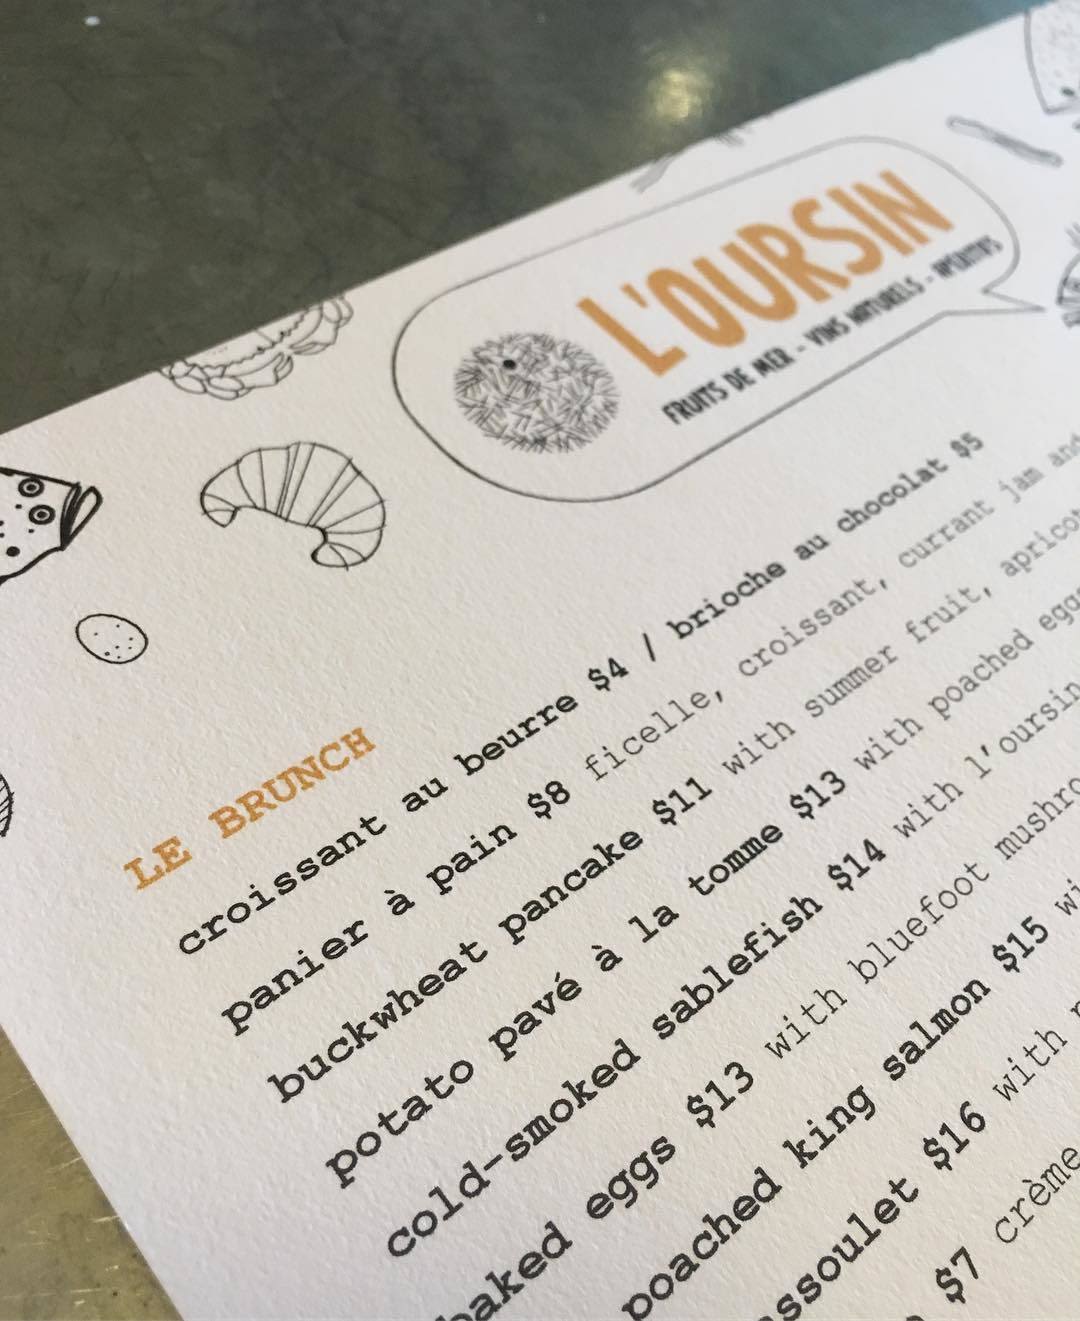 L'OURSIN
FRUITS DE MER - VINS NATURELS - APÉRITIFS
LE BRUNCH
croissant au beurre $4 / brioche au chocolat $5
panier à pain $8 ficelle, croissant, currant jam and
buckwheat pancake $11 with summer fruit, apricot
potato pavé à la tomme $13 with poached eggs
cold-smoked sablefish $14 with l'oursin
baked eggs $13 with bluefoot
poached king salmon $15
$16 with
$7 crème